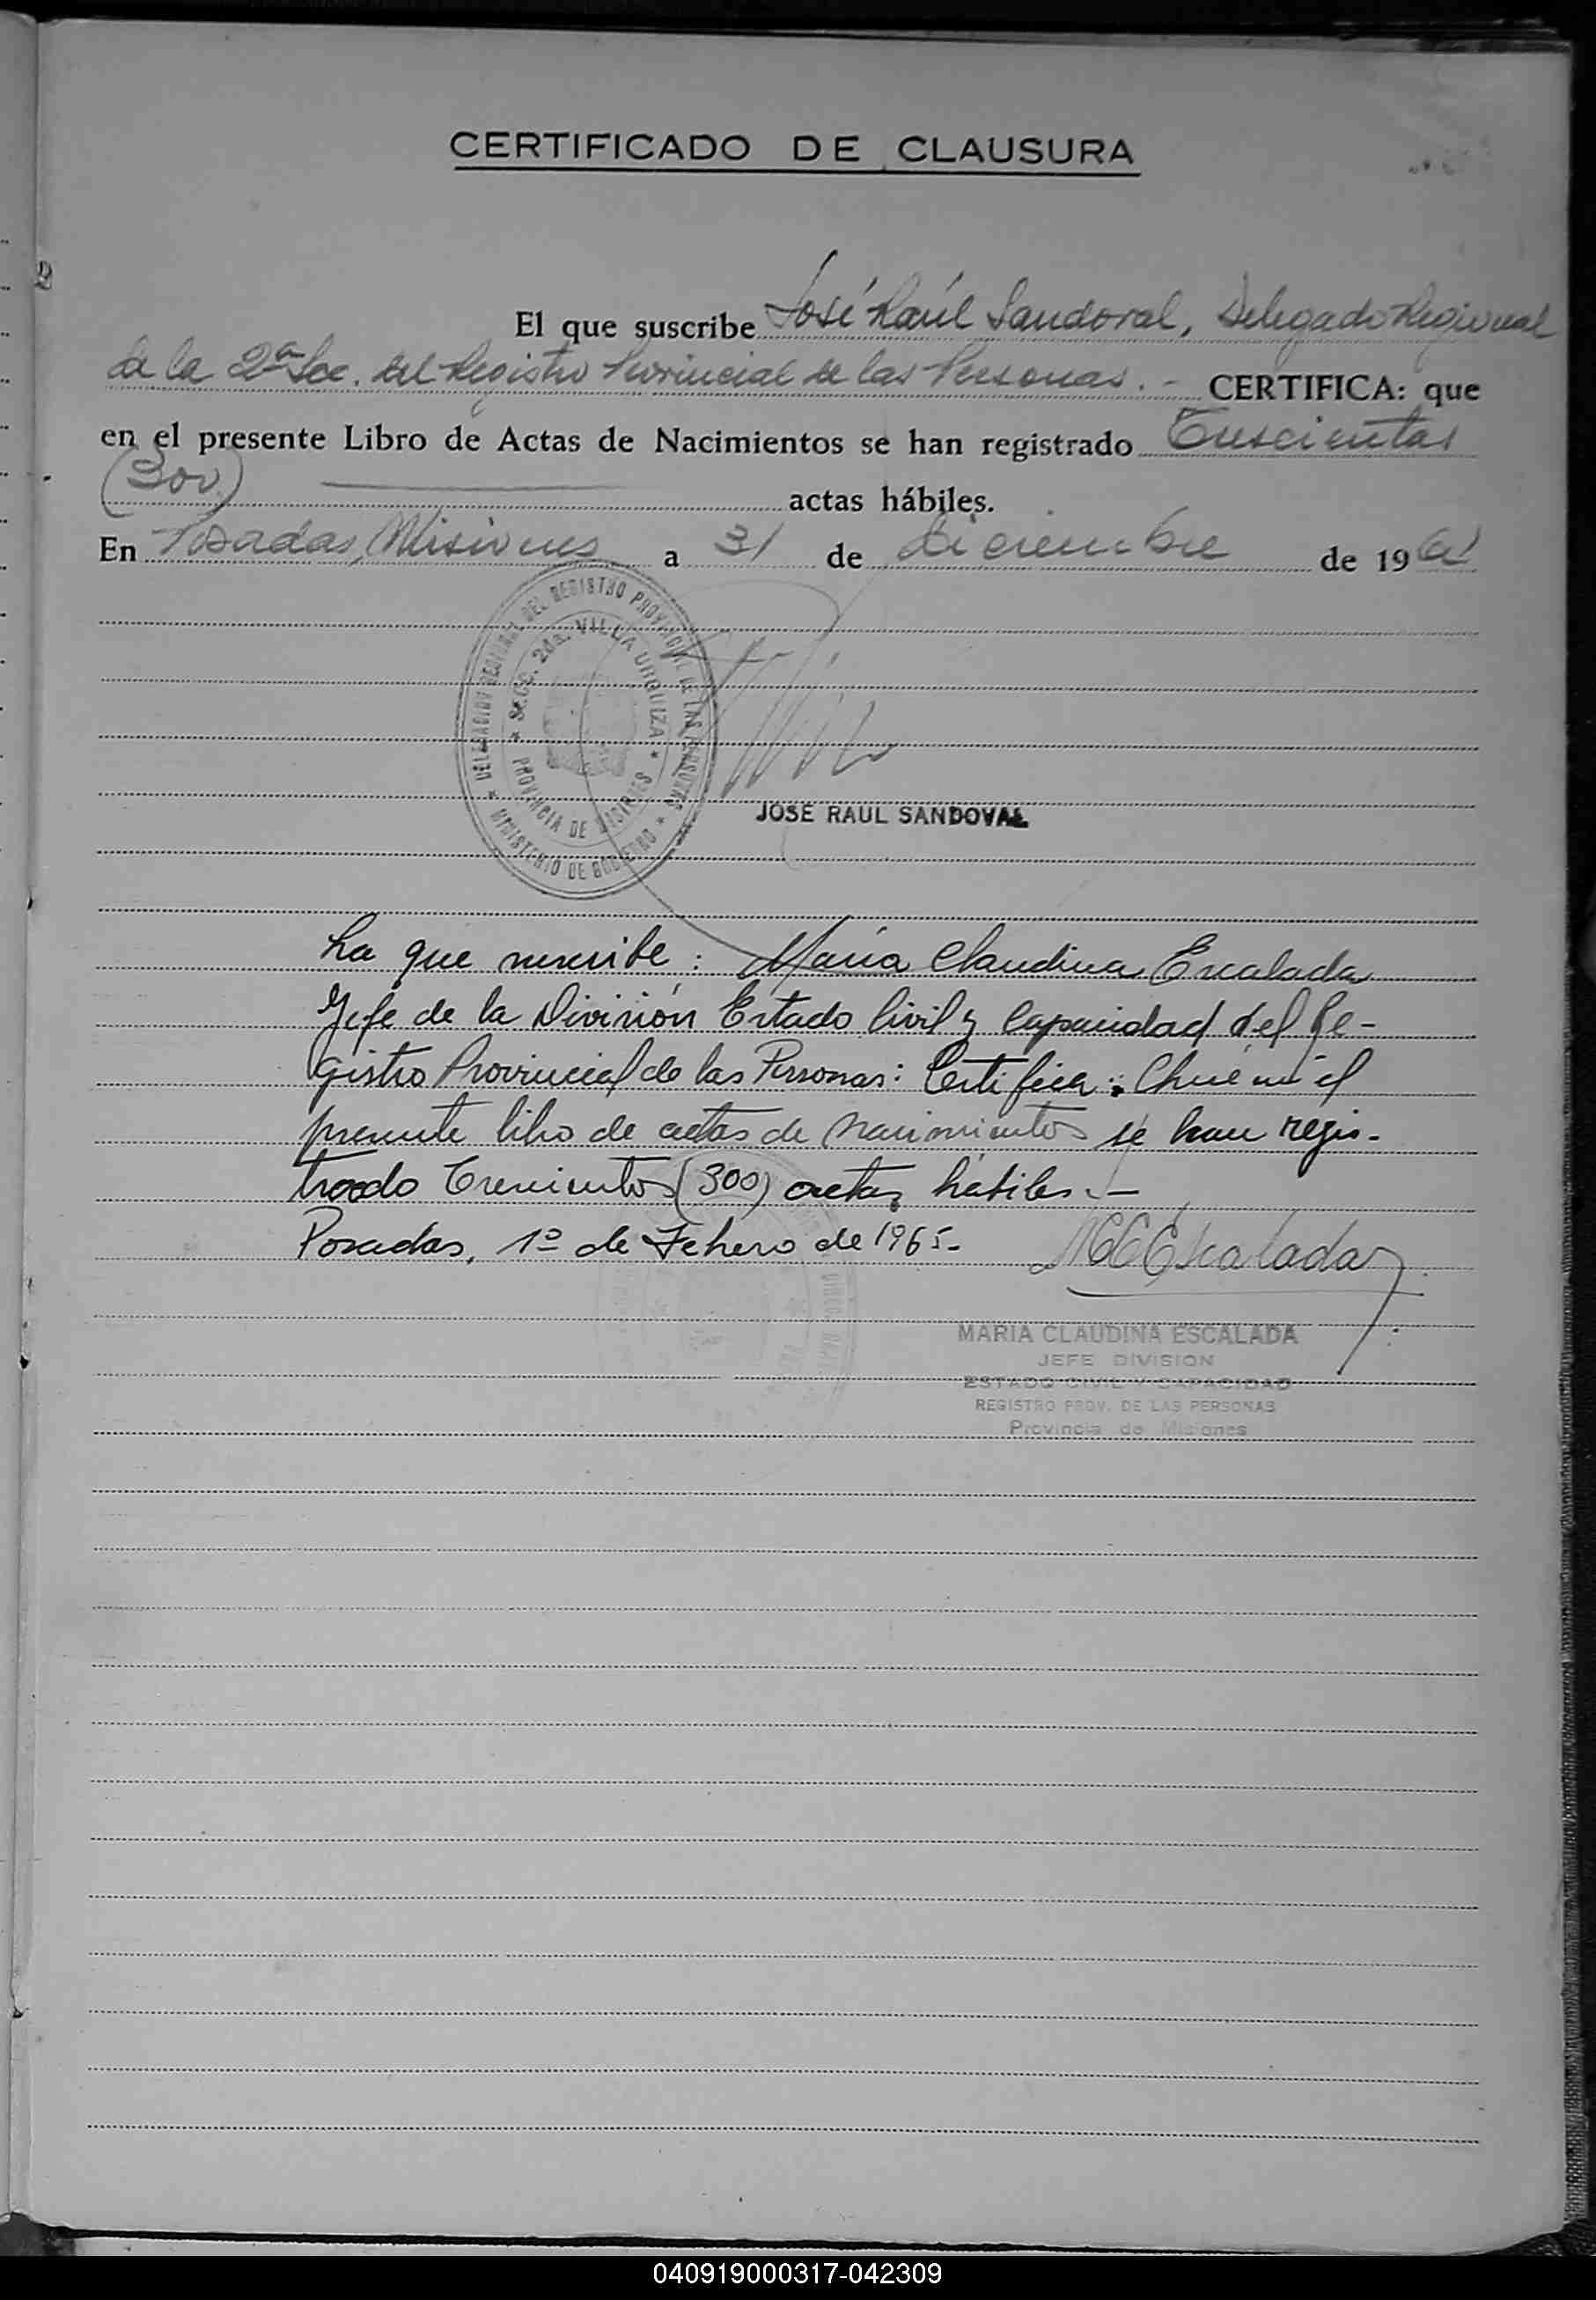 CERTIFICADO DE CLAUSURA
El que suscribe José Raúl Sandoval, Delegado Regional
de la 2ª Sec. del Registro Provincial de las Personas. - CERTIFICA: que
en el presente Libro de Actas de Nacimientos se han registrado Trescientas
(300) actas hábiles.
En Posadas, Misiones a 31 de Diciembre de 196
DELEGACION REGIONAL DEL REGISTRO PROVINCIAL DE LAS PERSONAS
SECC. 2da. VILLA URQUIZA
PROVINCIA DE MISIONES
MINISTERIO DE GOBIERNO
JOSÉ RAUL SANDOVAL
La que suscribe: María Claudina Escalada
Jefe de la División Estado Civil y Capacidad del Re-
gistro Provincial de las Personas: Certifica: Que en el
presente libro de actas de nacimientos se han regis-
trado Trescientos (300) actas hábiles.-
Posadas, 1º de Febrero de 1965.-
MCEscalada
MARIA CLAUDINA ESCALADA
JEFE DIVISION
ESTADO CIVIL Y CAPACIDAD
REGISTRO PROV. DE LAS PERSONAS
Provincia de Misiones
040919000317-042309